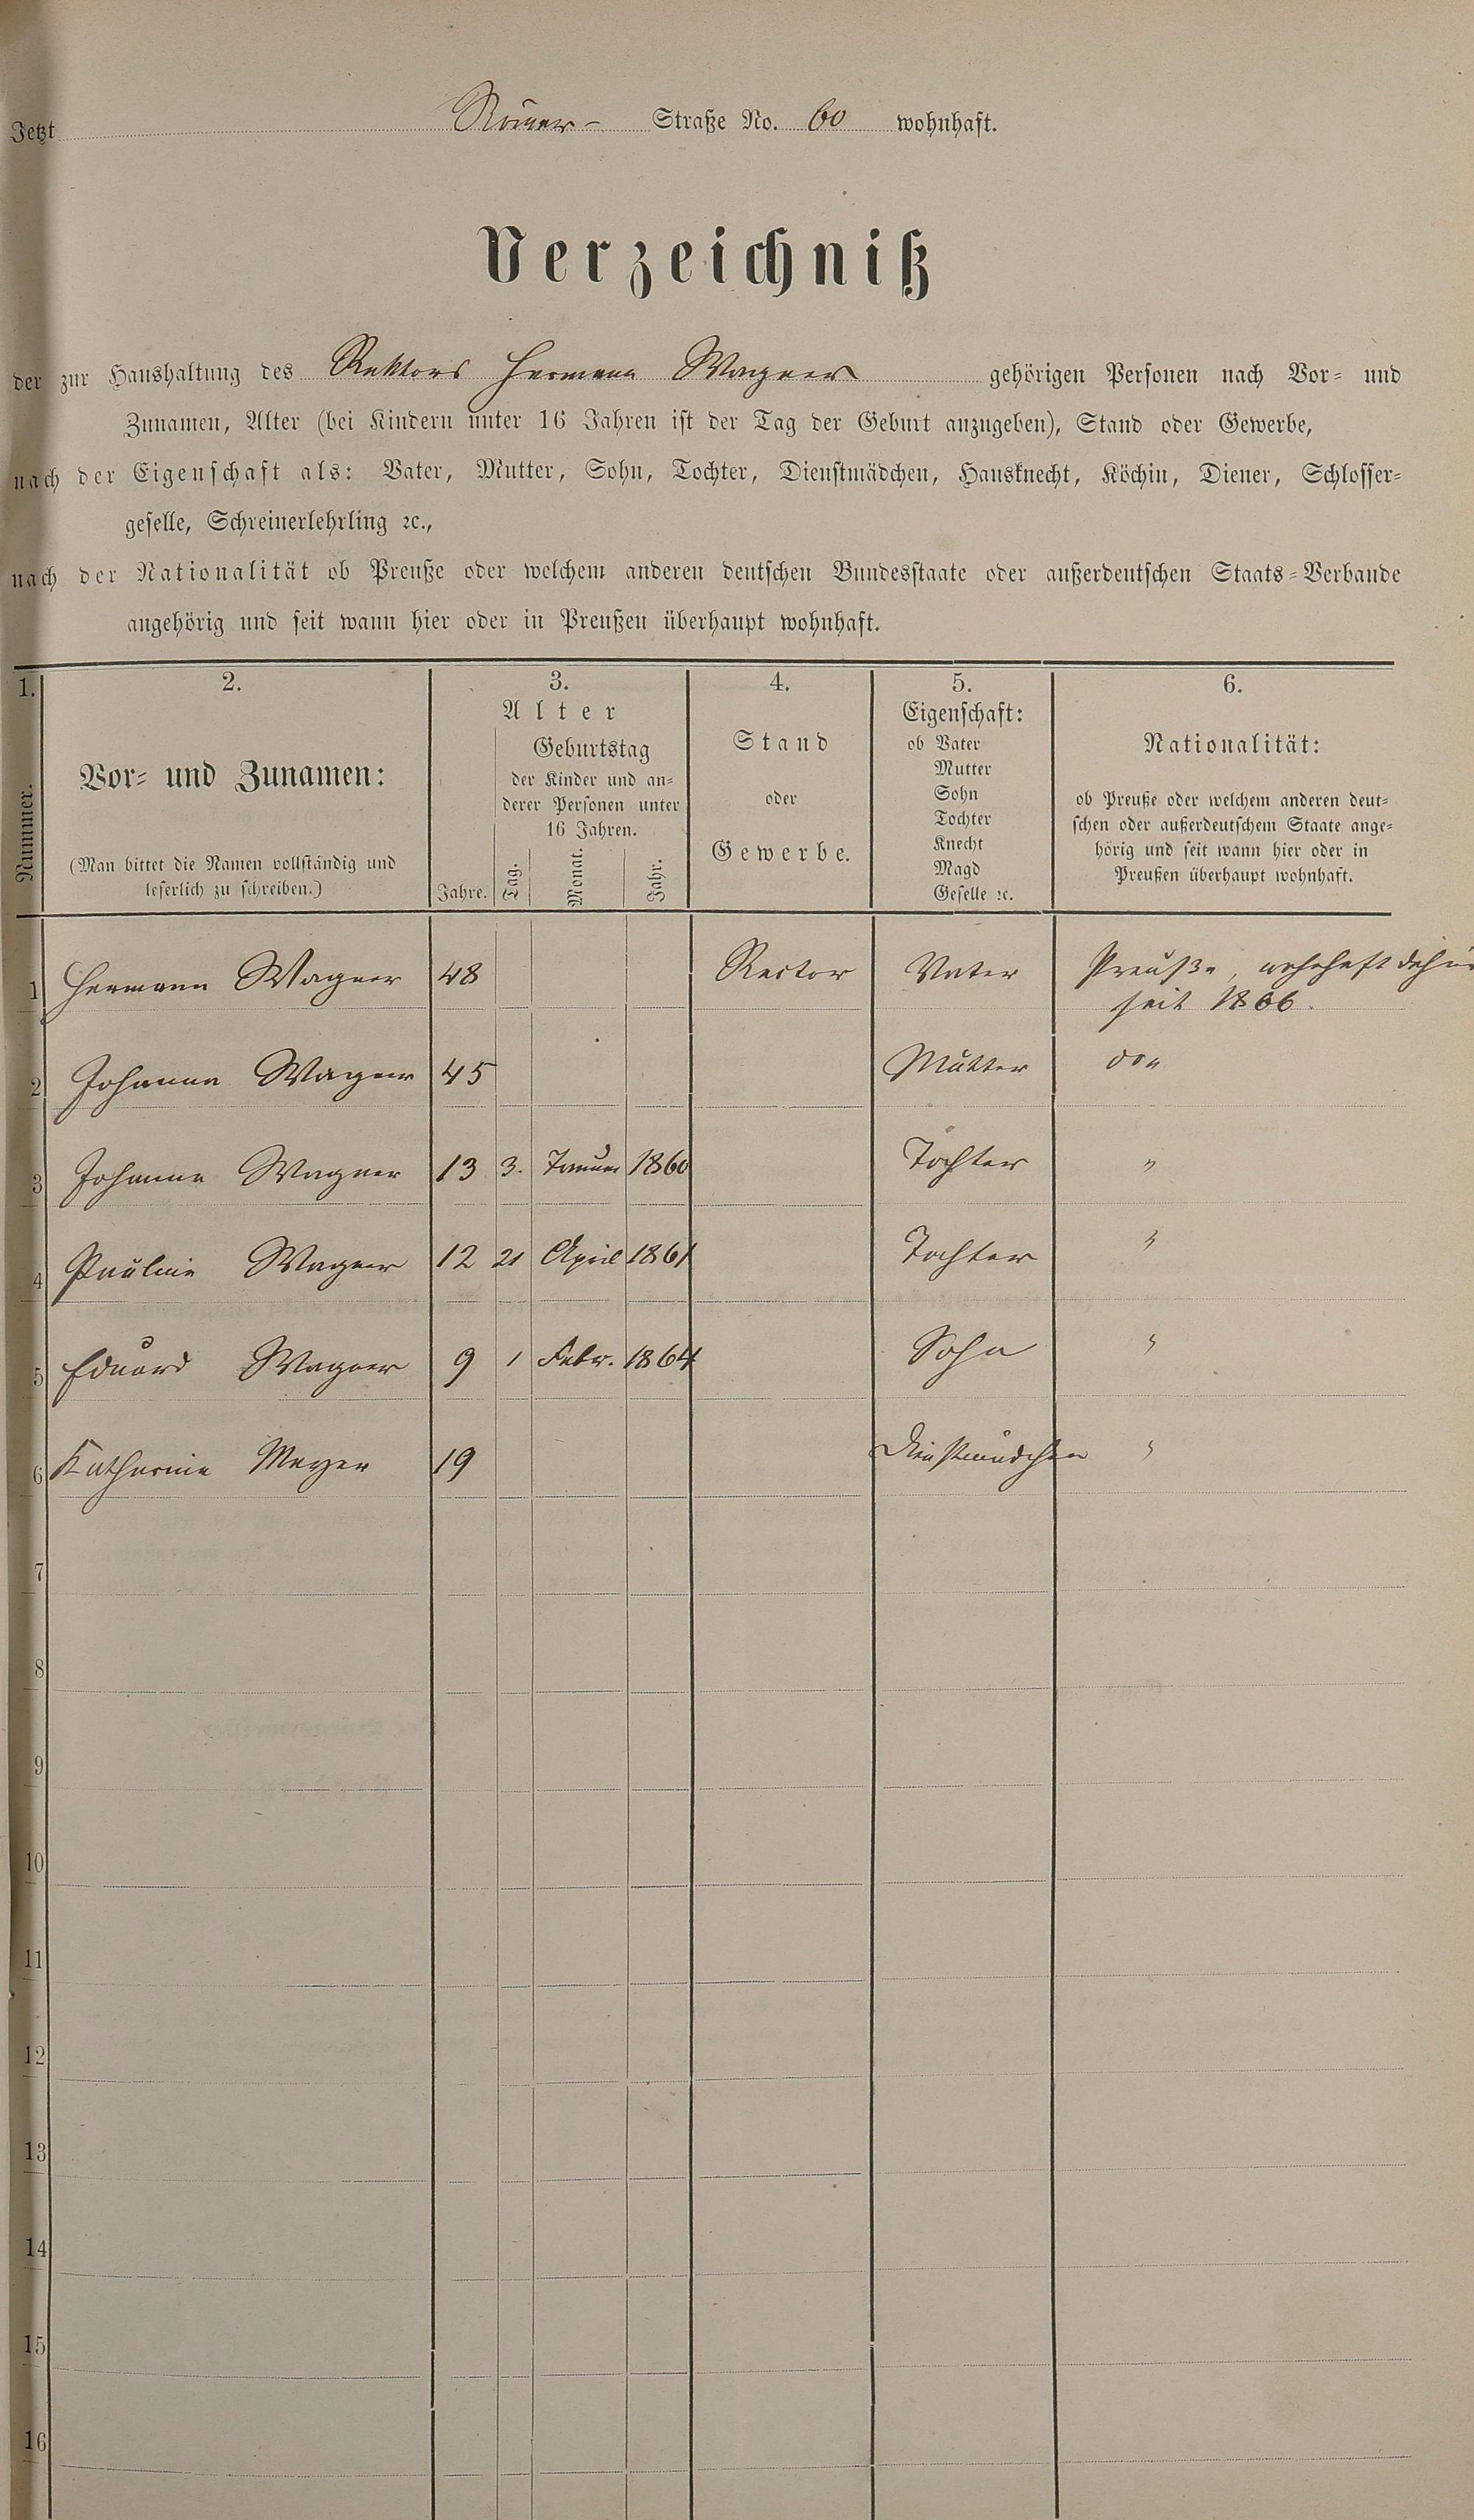 Jetzt Römer- Straße No. 60 wohnhaft.
Verzeichniß
der zur Haushaltung des Rektors Hermann Wagner gehörigen Personen nach Vor- und
Zunamen, Alter (bei Kindern unter 16 Jahren ist der Tag der Geburt anzugeben), Stand oder Gewerbe,
nach der Eigenschaft als: Vater, Mutter, Sohn, Tochter, Dienstmädchen, Hausknecht, Köchin, Diener, Schlosser-
geselle, Schreinerlehrling ꝛc.,
nach der Nationalität ob Preuße oder welchem anderen deutschen Bundesstaate oder außerdeutschen Staats-Verbande
angehörig und seit wann hier oder in Preußen überhaupt wohnhaft.
1. 2. 3. 4. 5. 6.
Nummer.
Vor- und Zunamen:
(Man bittet die Namen vollständig und
leserlich zu schreiben.)
Alter
Jahre.
Geburtstag
der Kinder und an-
derer Personen unter
16 Jahren.
Tag. Monat. Jahr.
Stand
oder
Gewerbe.
Eigenschaft:
ob Vater
Mutter
Sohn
Tochter
Knecht
Magd
Geselle ꝛc.
Nationalität:
ob Preuße oder welchem anderen deut-
schen oder außerdeutschem Staate ange-
hörig und seit wann hier oder in
Preußen überhaupt wohnhaft.
1 Hermann Wagner 48 Rector Vater Preuße, wohnhaft
seit 1866.
2 Johanna Wagner 45 Mutter
3 Johanna Wagner 13 3. Januar 1860 Tochter "
4 Pauline Wagner 12 21 April 1861 Tochter "
5 Eduard Wagner 9 1 Febr. 1864 Sohn "
6 Katharina Meyer 19 Dienstmädchen "
7
8
9
10
11
12
13
14
15
16